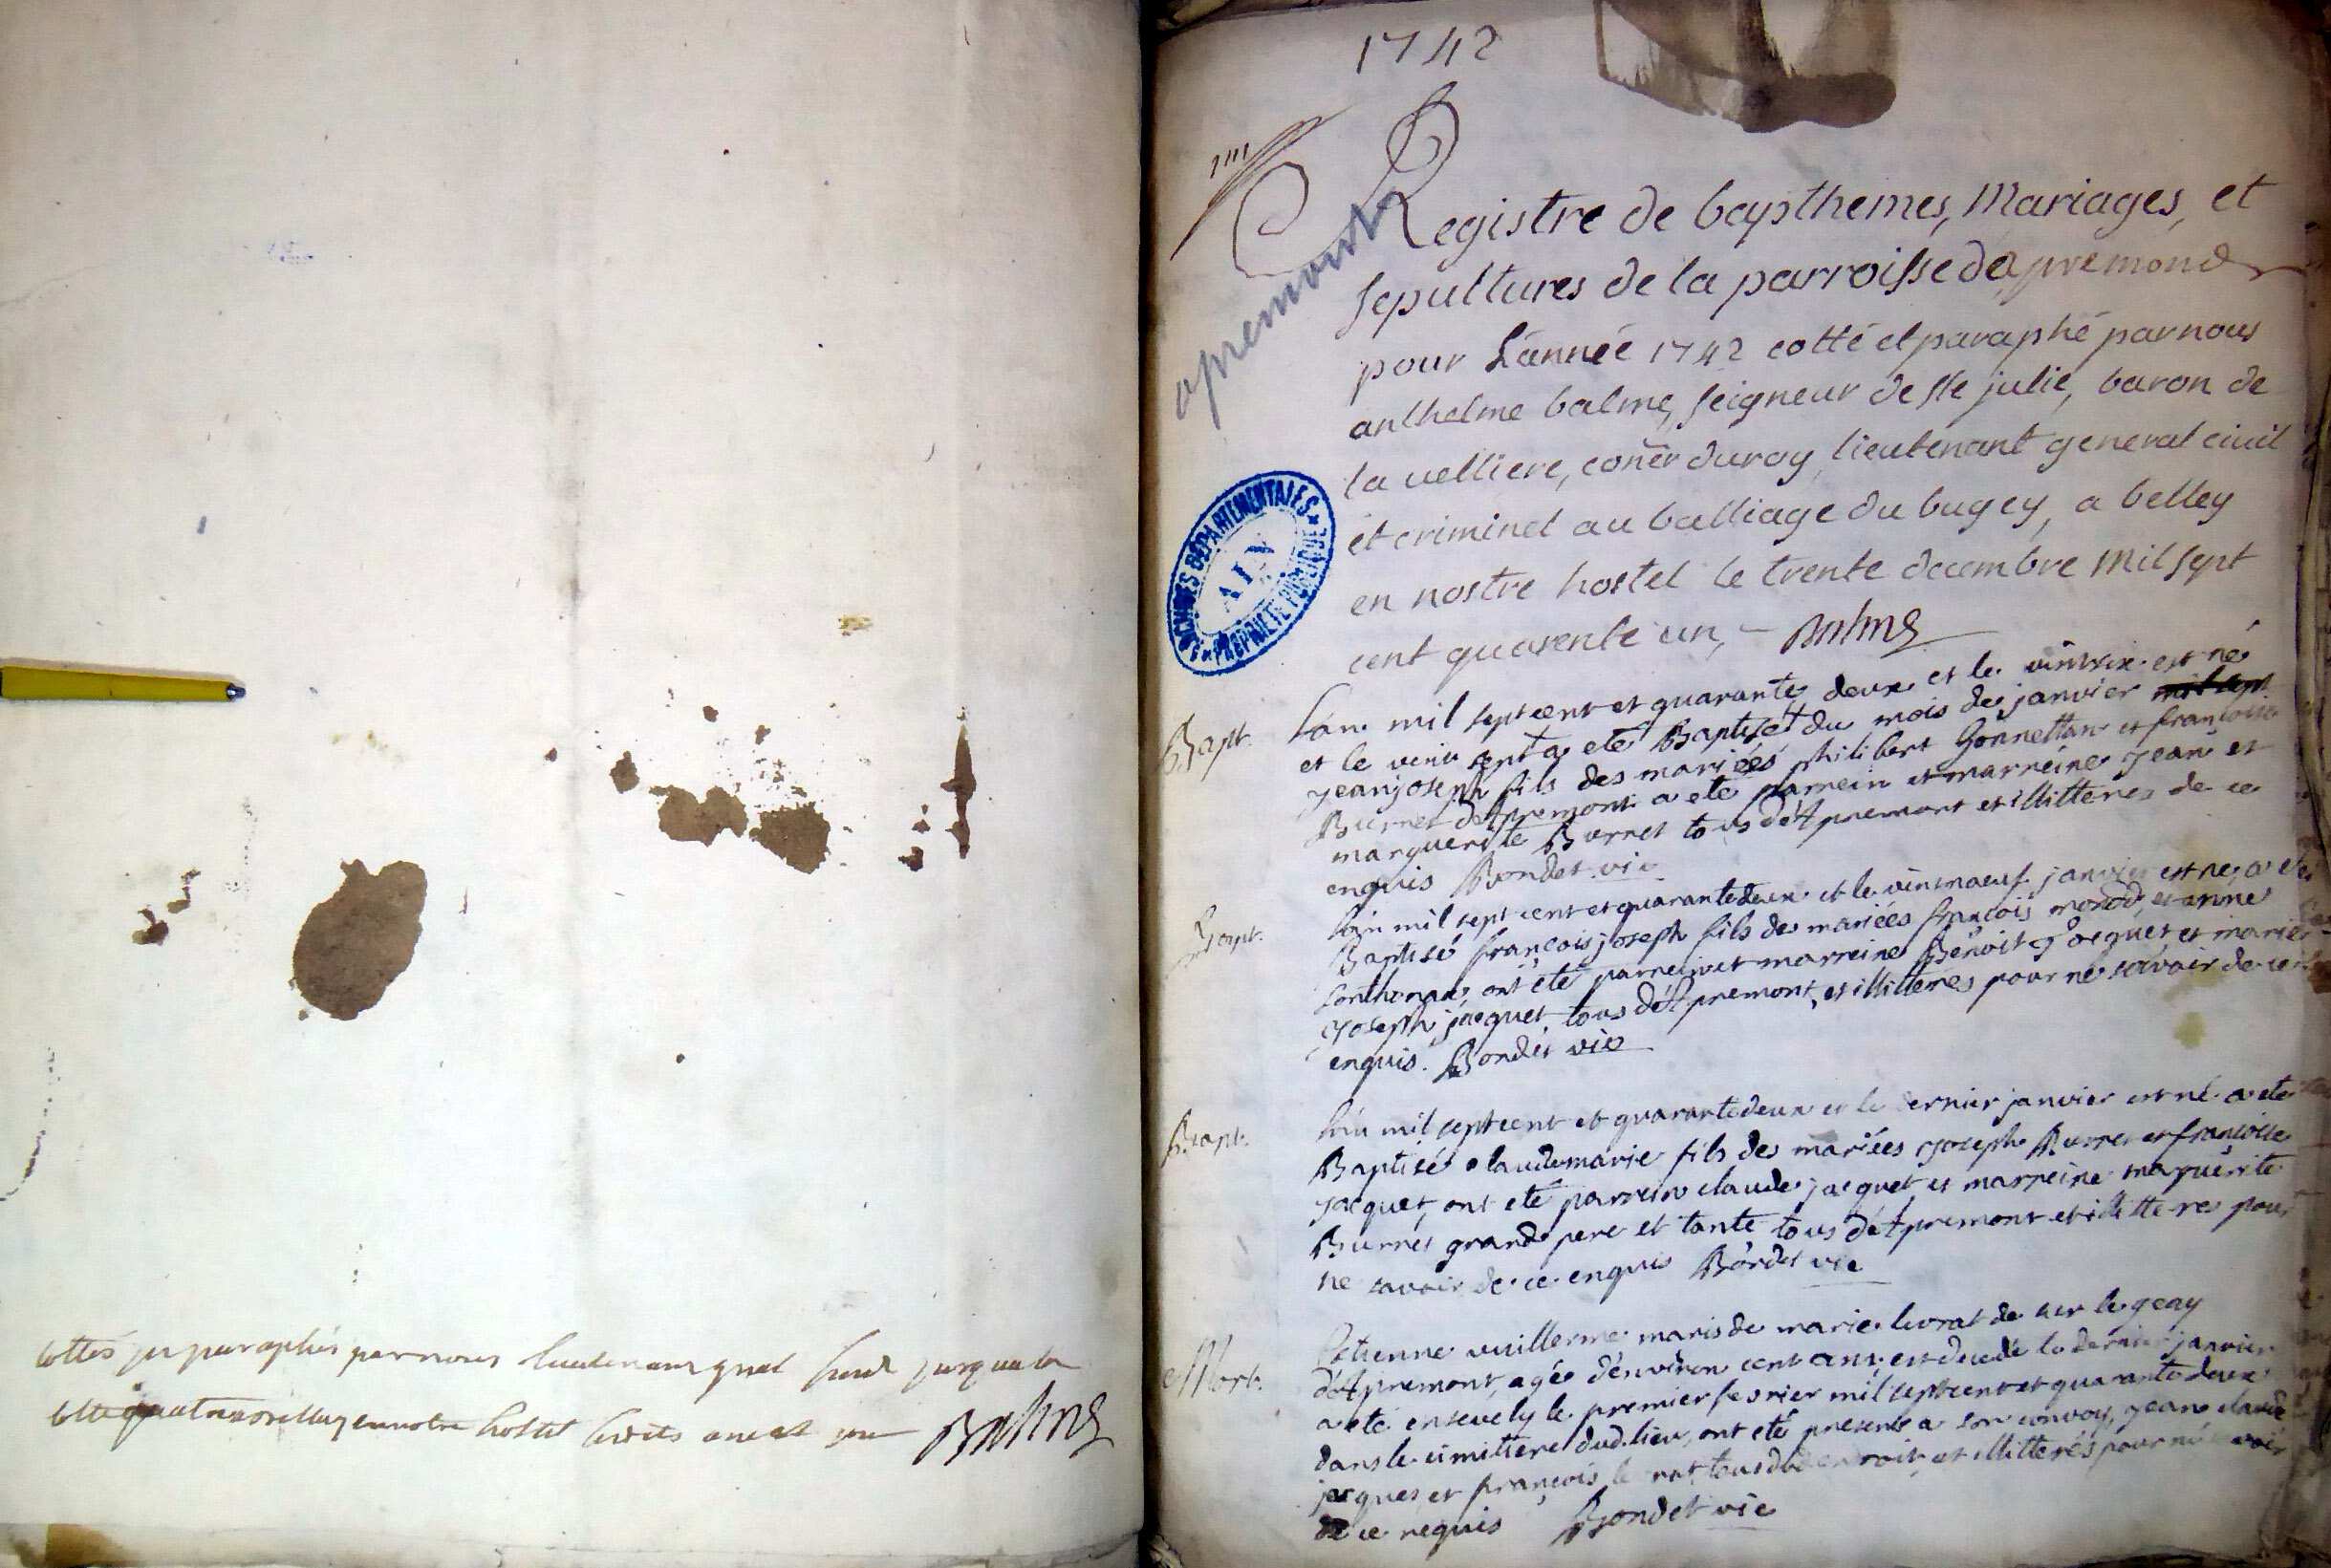 cottes et paraphés par nous lieutenant gnal jusqua la
cotte quatre en notre hostel Balme
1742
apremont
Registre de bapthemes, Mariages, et
sepultures de la parroisse daprémond
pour L'année 1742 cotté et paraphé par nous
anthelme balme, seigneur de ste julie, baron de
la velliere, coner du roy lieutenant general civil
et criminel au balliage du bugey, a belley
en nostre hostel le trente decembre mil sept
cent quarente un, Balme
ARCHIVES DÉPARTEMENTALES
AIN
PROPRIÉTÉ PUBLIQUE
Bapt.
L'an mil sept cent et quarante deux et le vintsix est né
et le vint sept a eté Baptisé du mois de janvier mil sept
jeanjoseph fils des mariées philibert Gonnettan et françoise
Burnet d'Apremont a eté parrein et marreine jean et
marguerite Burnet tous d'Apremont et illitteres de ce
enquis Bondet vic
Bapt.
L'an mil sept cent et quarantedeux et le vintneuf janvier est né a eté
Baptisé françois joseph fils des mariées françois monod, et anne
Sonthonax, ont eté parrein et marreine Benoit Jacquet et marie
joseph jacquet tous d'Apremont, et illitteres pour ne scavoir de ce
enquis. Bondet vic
Bapt.
L'an mil sept cent et quarantedeux et le dernier janvier est né a eté
Baptisé claudemarie fils des mariées joseph Burnet et françoise
Jacquet, ont eté parrein claude jacquet et marreine marguerite
Burnet grand pere et tante tous d'Apremont et illitteres pour
ne savoir de ce enquis Bondet vic
Mort.
Etienne vuillerme maris de marie levrat de sur le geay
d'Apremont, agée d'environ cent ans, est decedé le dernier janvier
a eté ensevely le premier fevrier mil sept cent et quarante deux
dans le cimittiere dud. lieu, ont eté presents a son convoy, jean claude
jacquet et françois le vrat tous dud endroit, et illitterés pour ne savoir
de ce requis Bondet vic